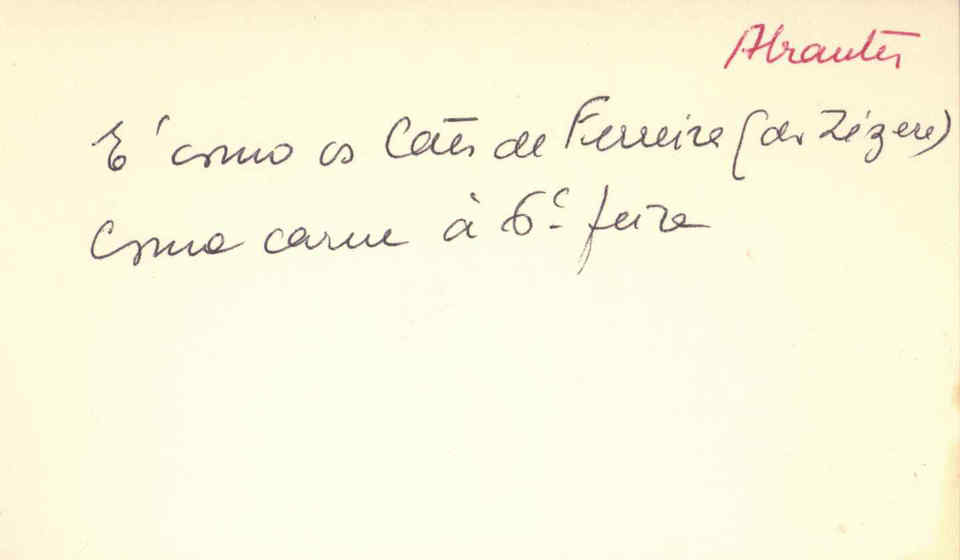 Abrantes
É como os Cães de Ferreira (do Zézere)
Come carne à 6ª feira